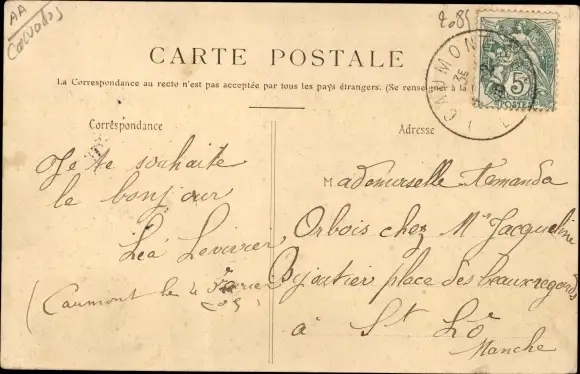 AA
Calvados
2085
CARTE POSTALE
La Correspondance au recto n'est pas acceptée par tous les pays étrangers. (Se renseigner à l
Correspondance
Je te souhaite
le bonjour
Léa Levivier,
(Caumont le 4 Février
Adresse
Mademoiselle Amanda
Orbois chez Mr Jacqueline
Bijoutier place des beaux regards
à St Lo
Manche
CAUMONT
5
POSTES